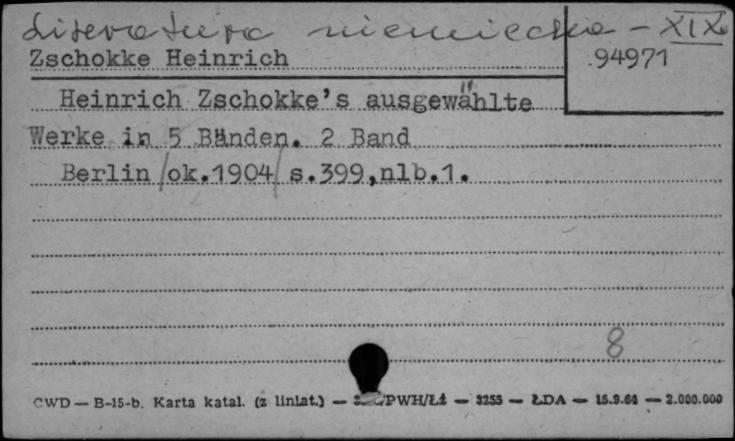 Literatura niemiecka - XIX w
Zschokke Heinrich
94971
Heinrich Zschokke's ausgewählte
Werke in 5 Bänden. 2 Band
Berlin /ok.1904/ s.399,nlb.1.
8
CWD — B-15-b. Karta katal. (z liniat.) — PWH/Łź — 3255 — ŁDA — 15.9.64 — 2.000.000